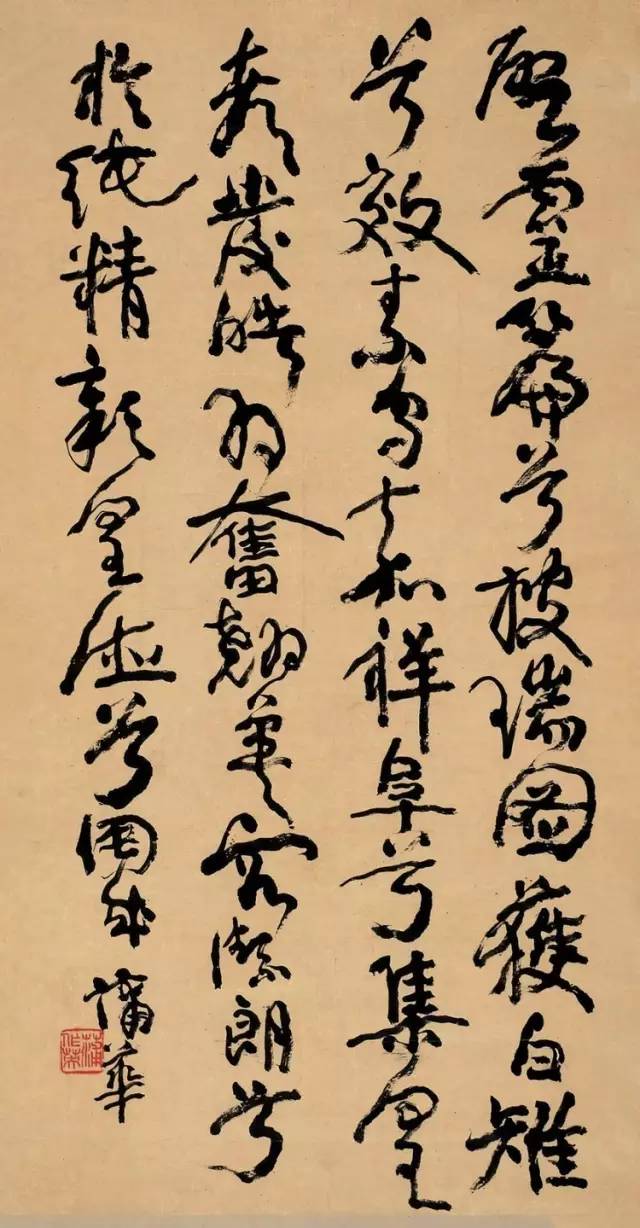 啟靈篇兮披瑞圖獲白雉
兮效素烏嘉祥阜兮集皇
都發皓羽奮翹英容潔朗兮
於純精彰皇德兮周成 蒲華
蒲作英